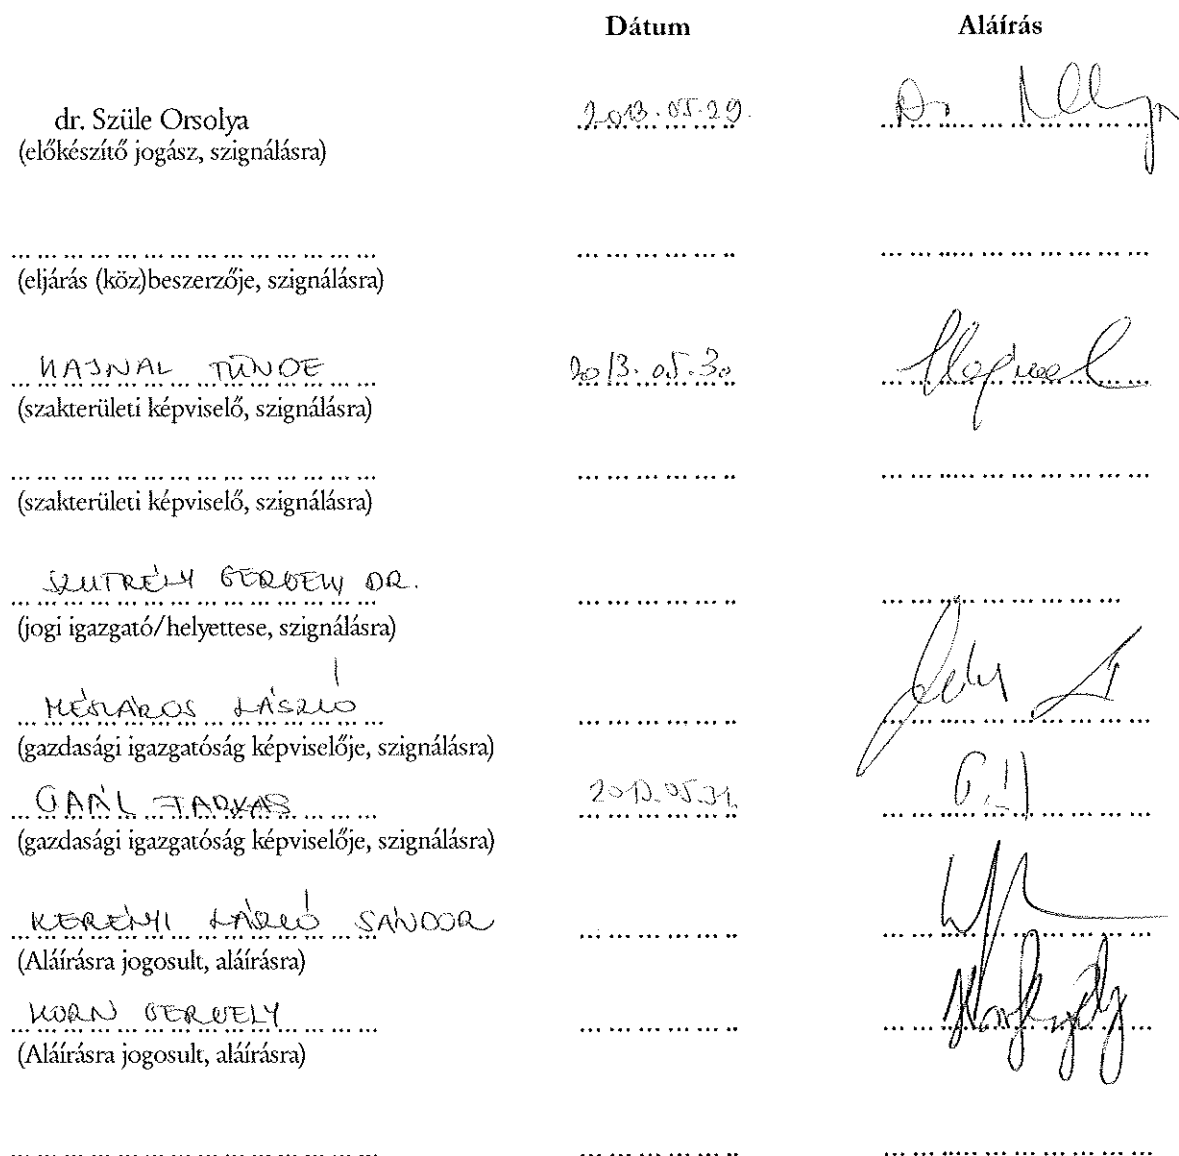 Dátum Aláírás
dr. Szüle Orsolya 2013.05.29. Dr.
(előkészítő jogász, szignálásra)
(eljárás (köz)beszerzője, szignálásra)
HAJNAL TÜNDE 2013.05.30 Hajnal
(szakterületi képviselő, szignálásra)
(szakterületi képviselő, szignálásra)
SZUTRÉLY GERGELY DR.
(jogi igazgató/helyettese, szignálásra)
MÉSZÁROS LÁSZLÓ
(gazdasági igazgatóság képviselője, szignálásra)
GAÁL FARKAS 2013.05.31.
(gazdasági igazgatóság képviselője, szignálásra)
KERÉNYI LÁSZLÓ SÁNDOR
(Aláírásra jogosult, aláírásra)
KORN GERGELY
(Aláírásra jogosult, aláírásra)